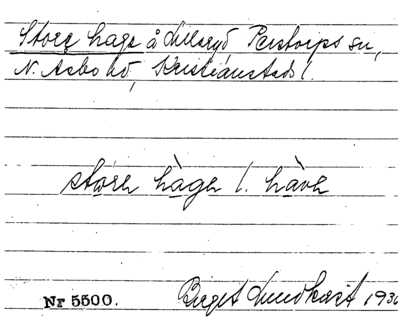 Store hage å Lillaryd Perstorps sn,
N. Åsbo hd, Kristianstads l.
störe hàge l. hàve
Nr 5500. Birgit Lundkvist 1936